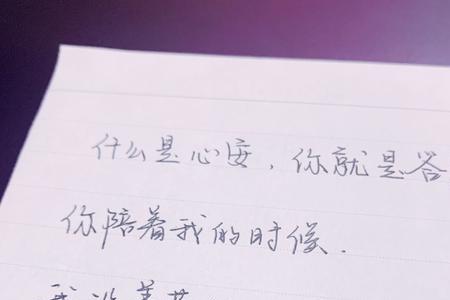 什么是心安，你就是答
你陪着我的时候.
我